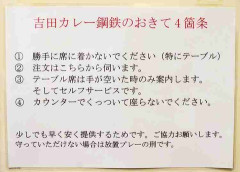 吉田カレー鋼鉄のおきて4箇条
① 勝手に席に着かないでください（特にテーブル）
② 注文はこちらから伺います。
③ テーブル席は手が空いた時のみ案内します。
そしてセルフサービスです。
④ カウンターでくっついて座らないでください。
少しでも早く安く提供するためです。ご協力お願いします。
守っていただけない場合は放置プレーの刑です。